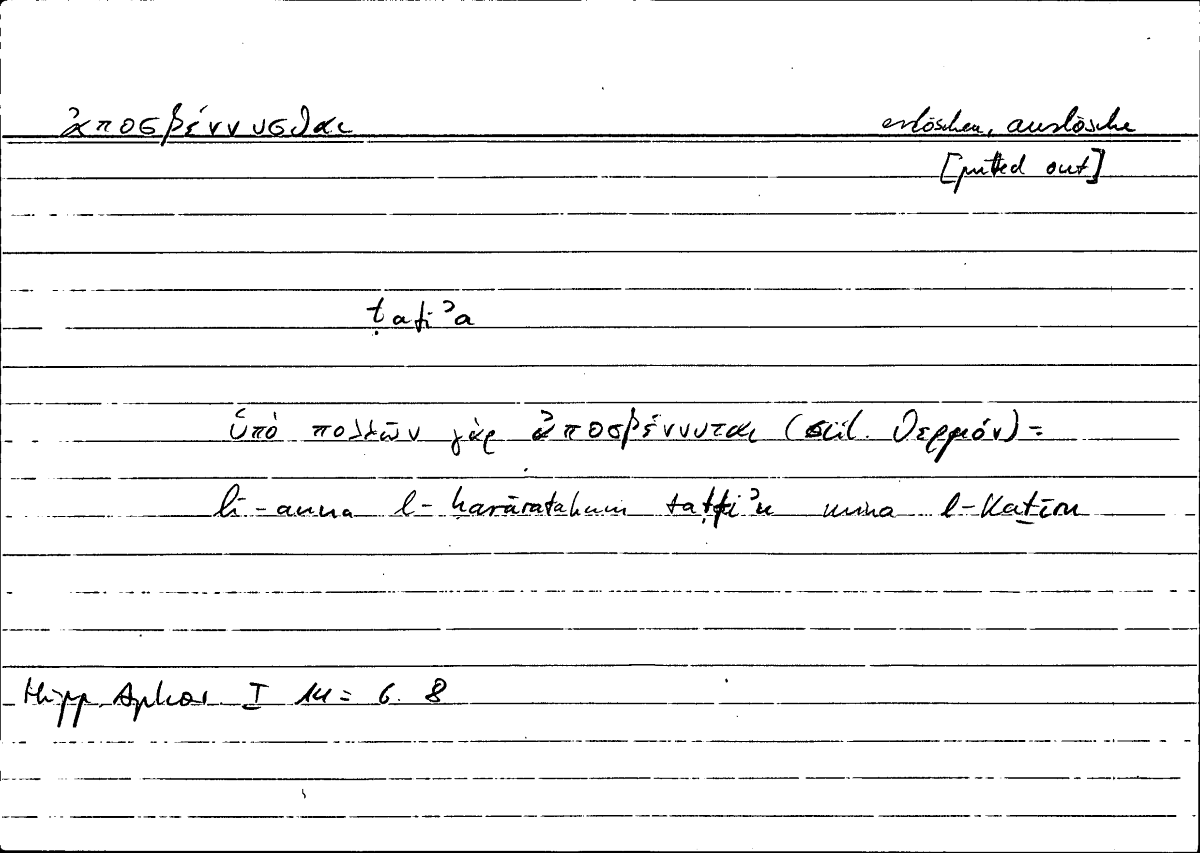 ἀποσβέννυσθαι erlöschen, auslösche
[putted out]
ṭafiʾa
ὑπὸ πολλῶν γὰρ ἀποσβέννυται (scil. θερμόν) =
li-anna l-ḥarāratahum taṭfiʾu mina l-Kaṯīru
Hipp. Aphor. I 14 = 6. 8